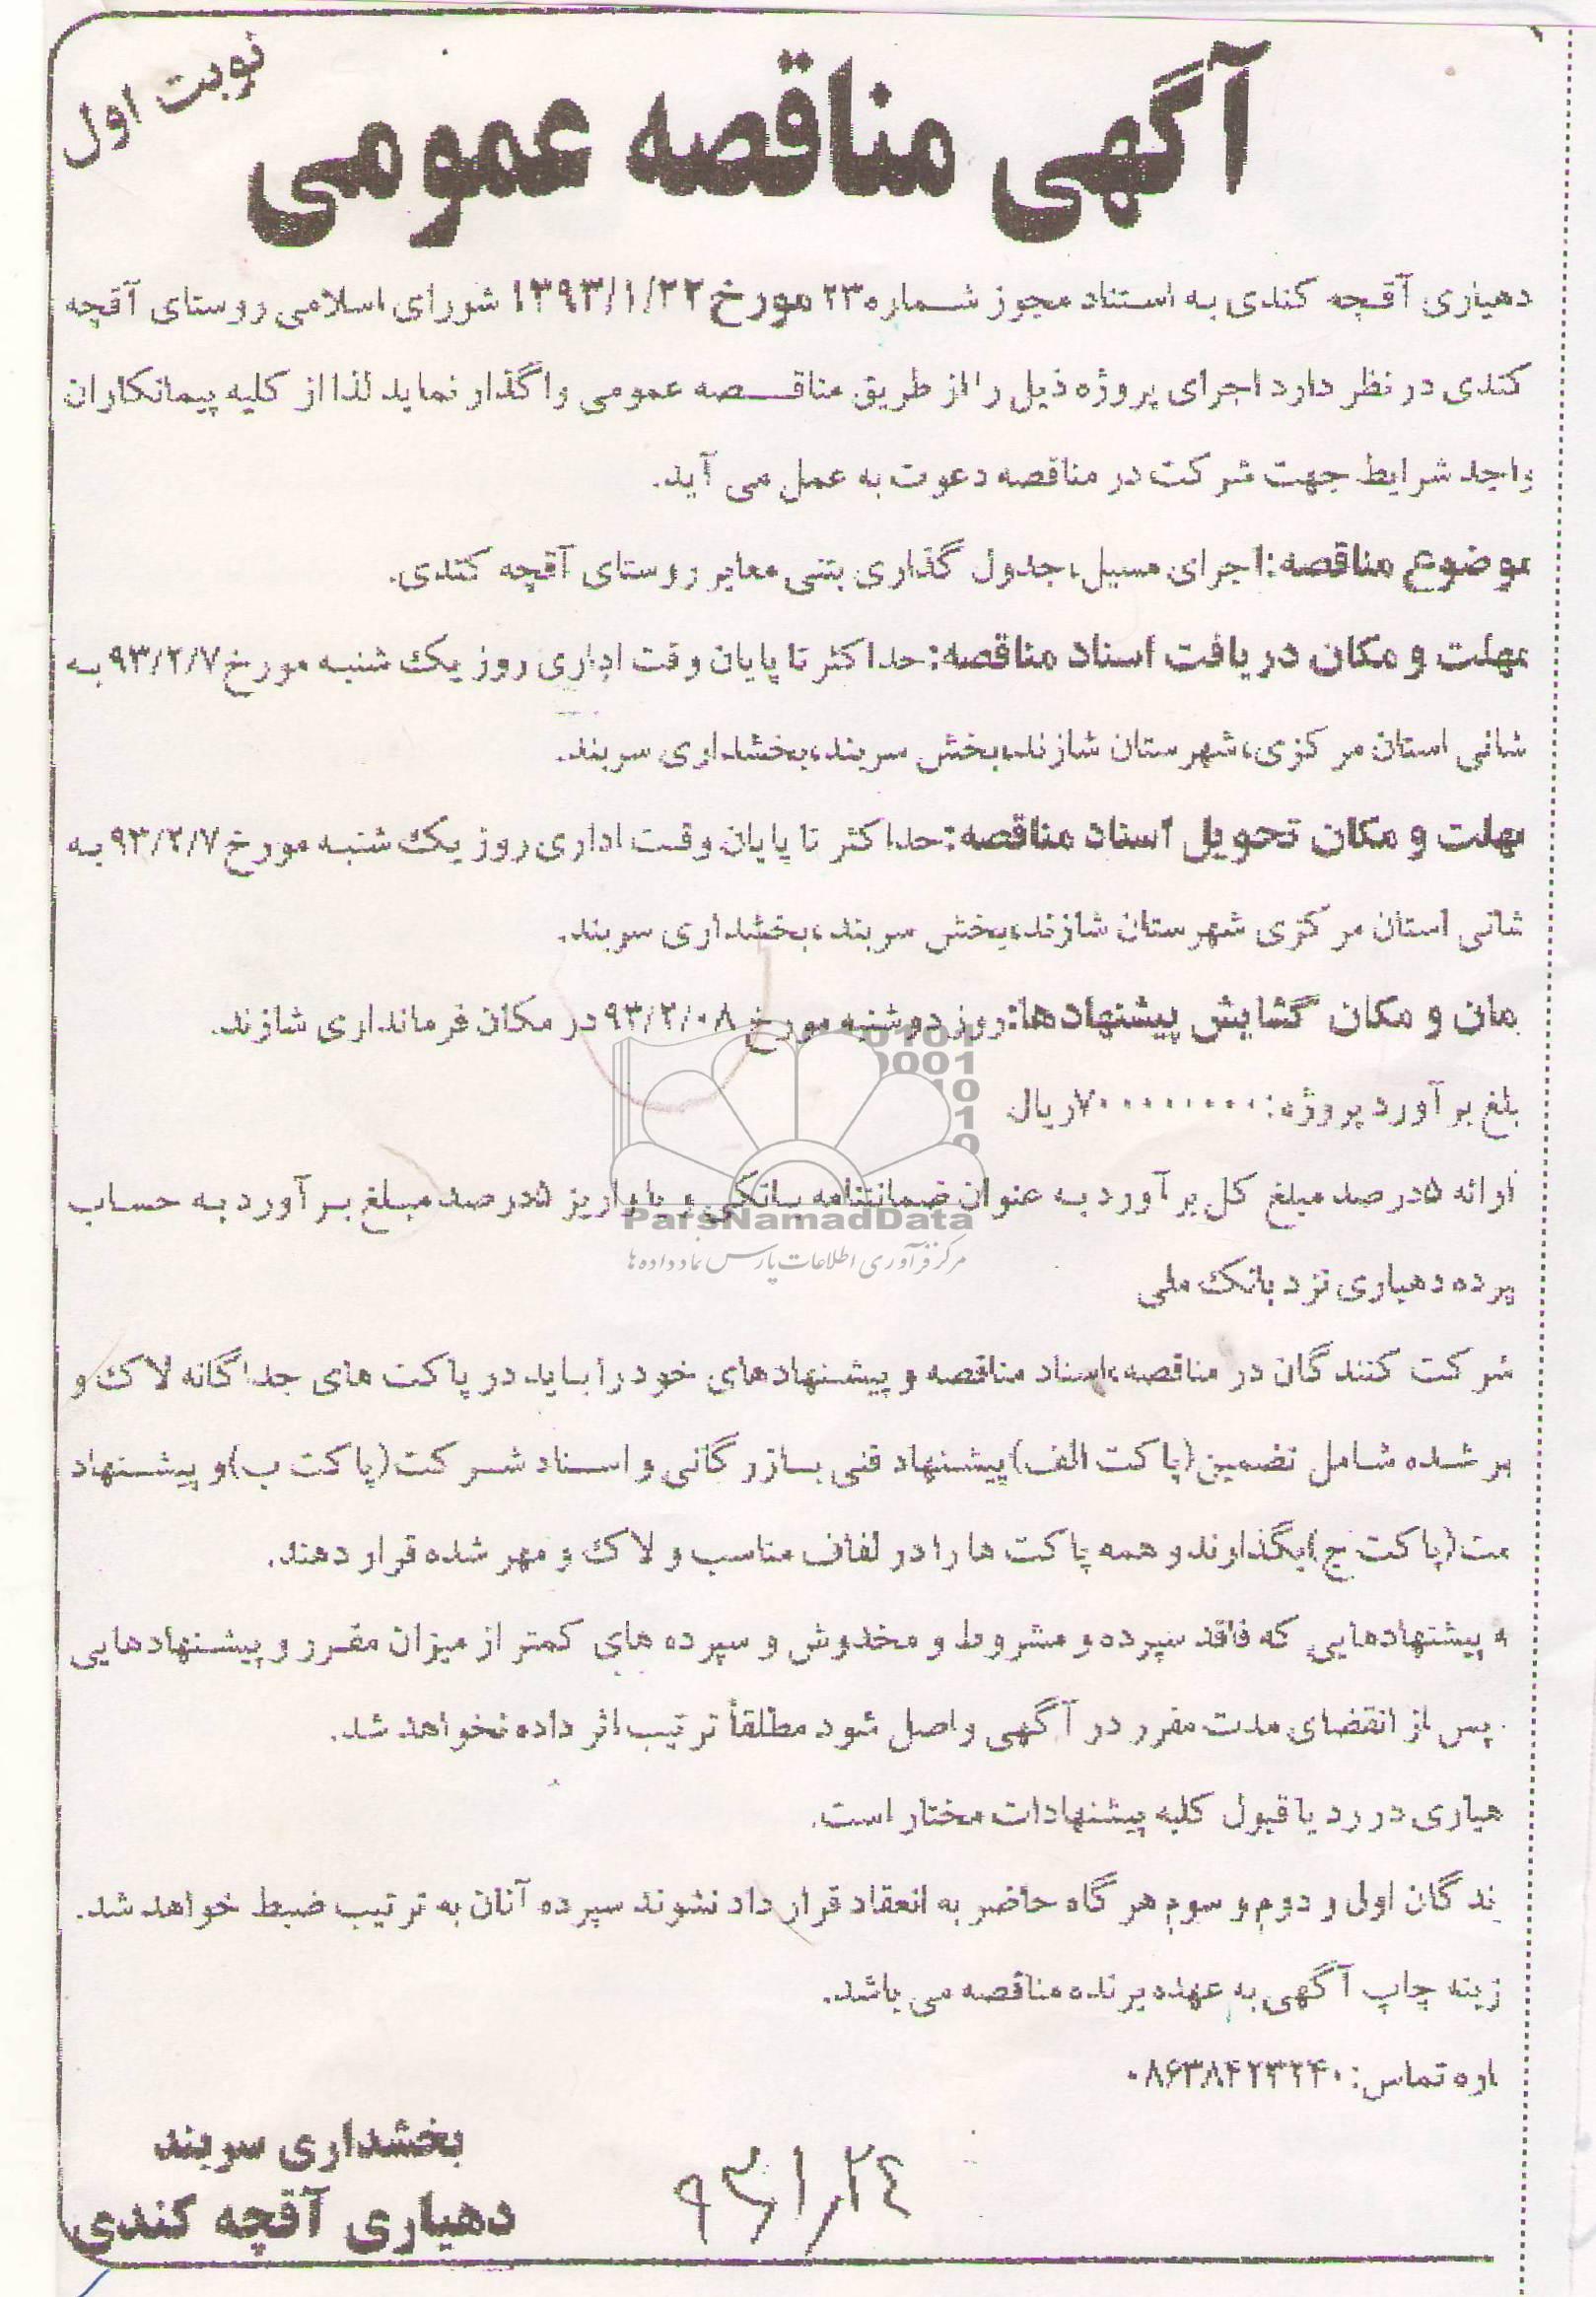 نوبت اول
آگهی مناقصه عمومی
دهیاری آقچه کندی به استناد مجوز شماره ۲۳ مورخ ۱۳۹۳/۱/۲۲ شورای اسلامی روستای آقچه
کندی در نظر دارد اجرای پروژه ذیل را از طریق مناقصه عمومی واگذار نماید لذا از کلیه پیمانکاران
واجد شرایط جهت شرکت در مناقصه دعوت به عمل می آید.
موضوع مناقصه: اجرای مسیل، جدول گذاری بتنی معابر روستای آقچه کندی.
مهلت و مکان دریافت اسناد مناقصه: حداکثر تا پایان وقت اداری روز یک شنبه مورخ ۹۳/۲/۷ به
شانی استان مرکزی، شهرستان شازند، بخش سربند، بخشداری سربند.
مهلت و مکان تحویل اسناد مناقصه: حداکثر تا پایان وقت اداری روز یک شنبه مورخ ۹۳/۲/۷ به
شانی استان مرکزی شهرستان شازند، بخش سربند، بخشداری سربند.
مان و مکان گشایش پیشنهادها: روز دوشنبه مورخ ۹۳/۲/۰۸ در مکان فرمانداری شازند.
بلغ برآورد پروژه: ۷۰۰۰۰۰۰۰۰۰ ریال
ارائه ۵ درصد مبلغ کل برآورد به عنوان ضمانتنامه بانکی و یا واریز ۵ درصد مبلغ برآورد به حساب
پرده دهیاری نزد بانک ملی
شرکت کنندگان در مناقصه، اسناد مناقصه و پیشنهادهای خود را باید در پاکت های جداگانه لاک و
هر شده شامل تضمین (پاکت الف) پیشنهاد فنی بازرگانی و اسناد شرکت (پاکت ب) و پیشنهاد
مت (پاکت ج) بگذارند و همه پاکت ها را در لفاف مناسب و لاک و مهر شده قرار دهند.
ه پیشنهادهایی که فاقد سپرده و مشروط و مخدوش و سپرده های کمتر از میزان مقرر و پیشنهادهایی
پس از انقضای مدت مقرر در آگهی واصل شود مطلقاً ترتیب اثر داده نخواهد شد.
هیاری در رد یا قبول کلیه پیشنهادات مختار است.
ندگان اول و دوم و سوم هرگاه حاضر به انعقاد قرارداد نشوند سپرده آنان به ترتیب ضبط خواهد شد.
زینه چاپ آگهی به عهده برنده مناقصه می باشد.
اره تماس: ۰۸۶۳۸۴۲۳۲۴۰
بخشداری سربند
دهیاری آقچه کندی
۹۳/۱/۲۴
ParsNamadData
مرکز فرآوری اطلاعات پارس نماد داده ها